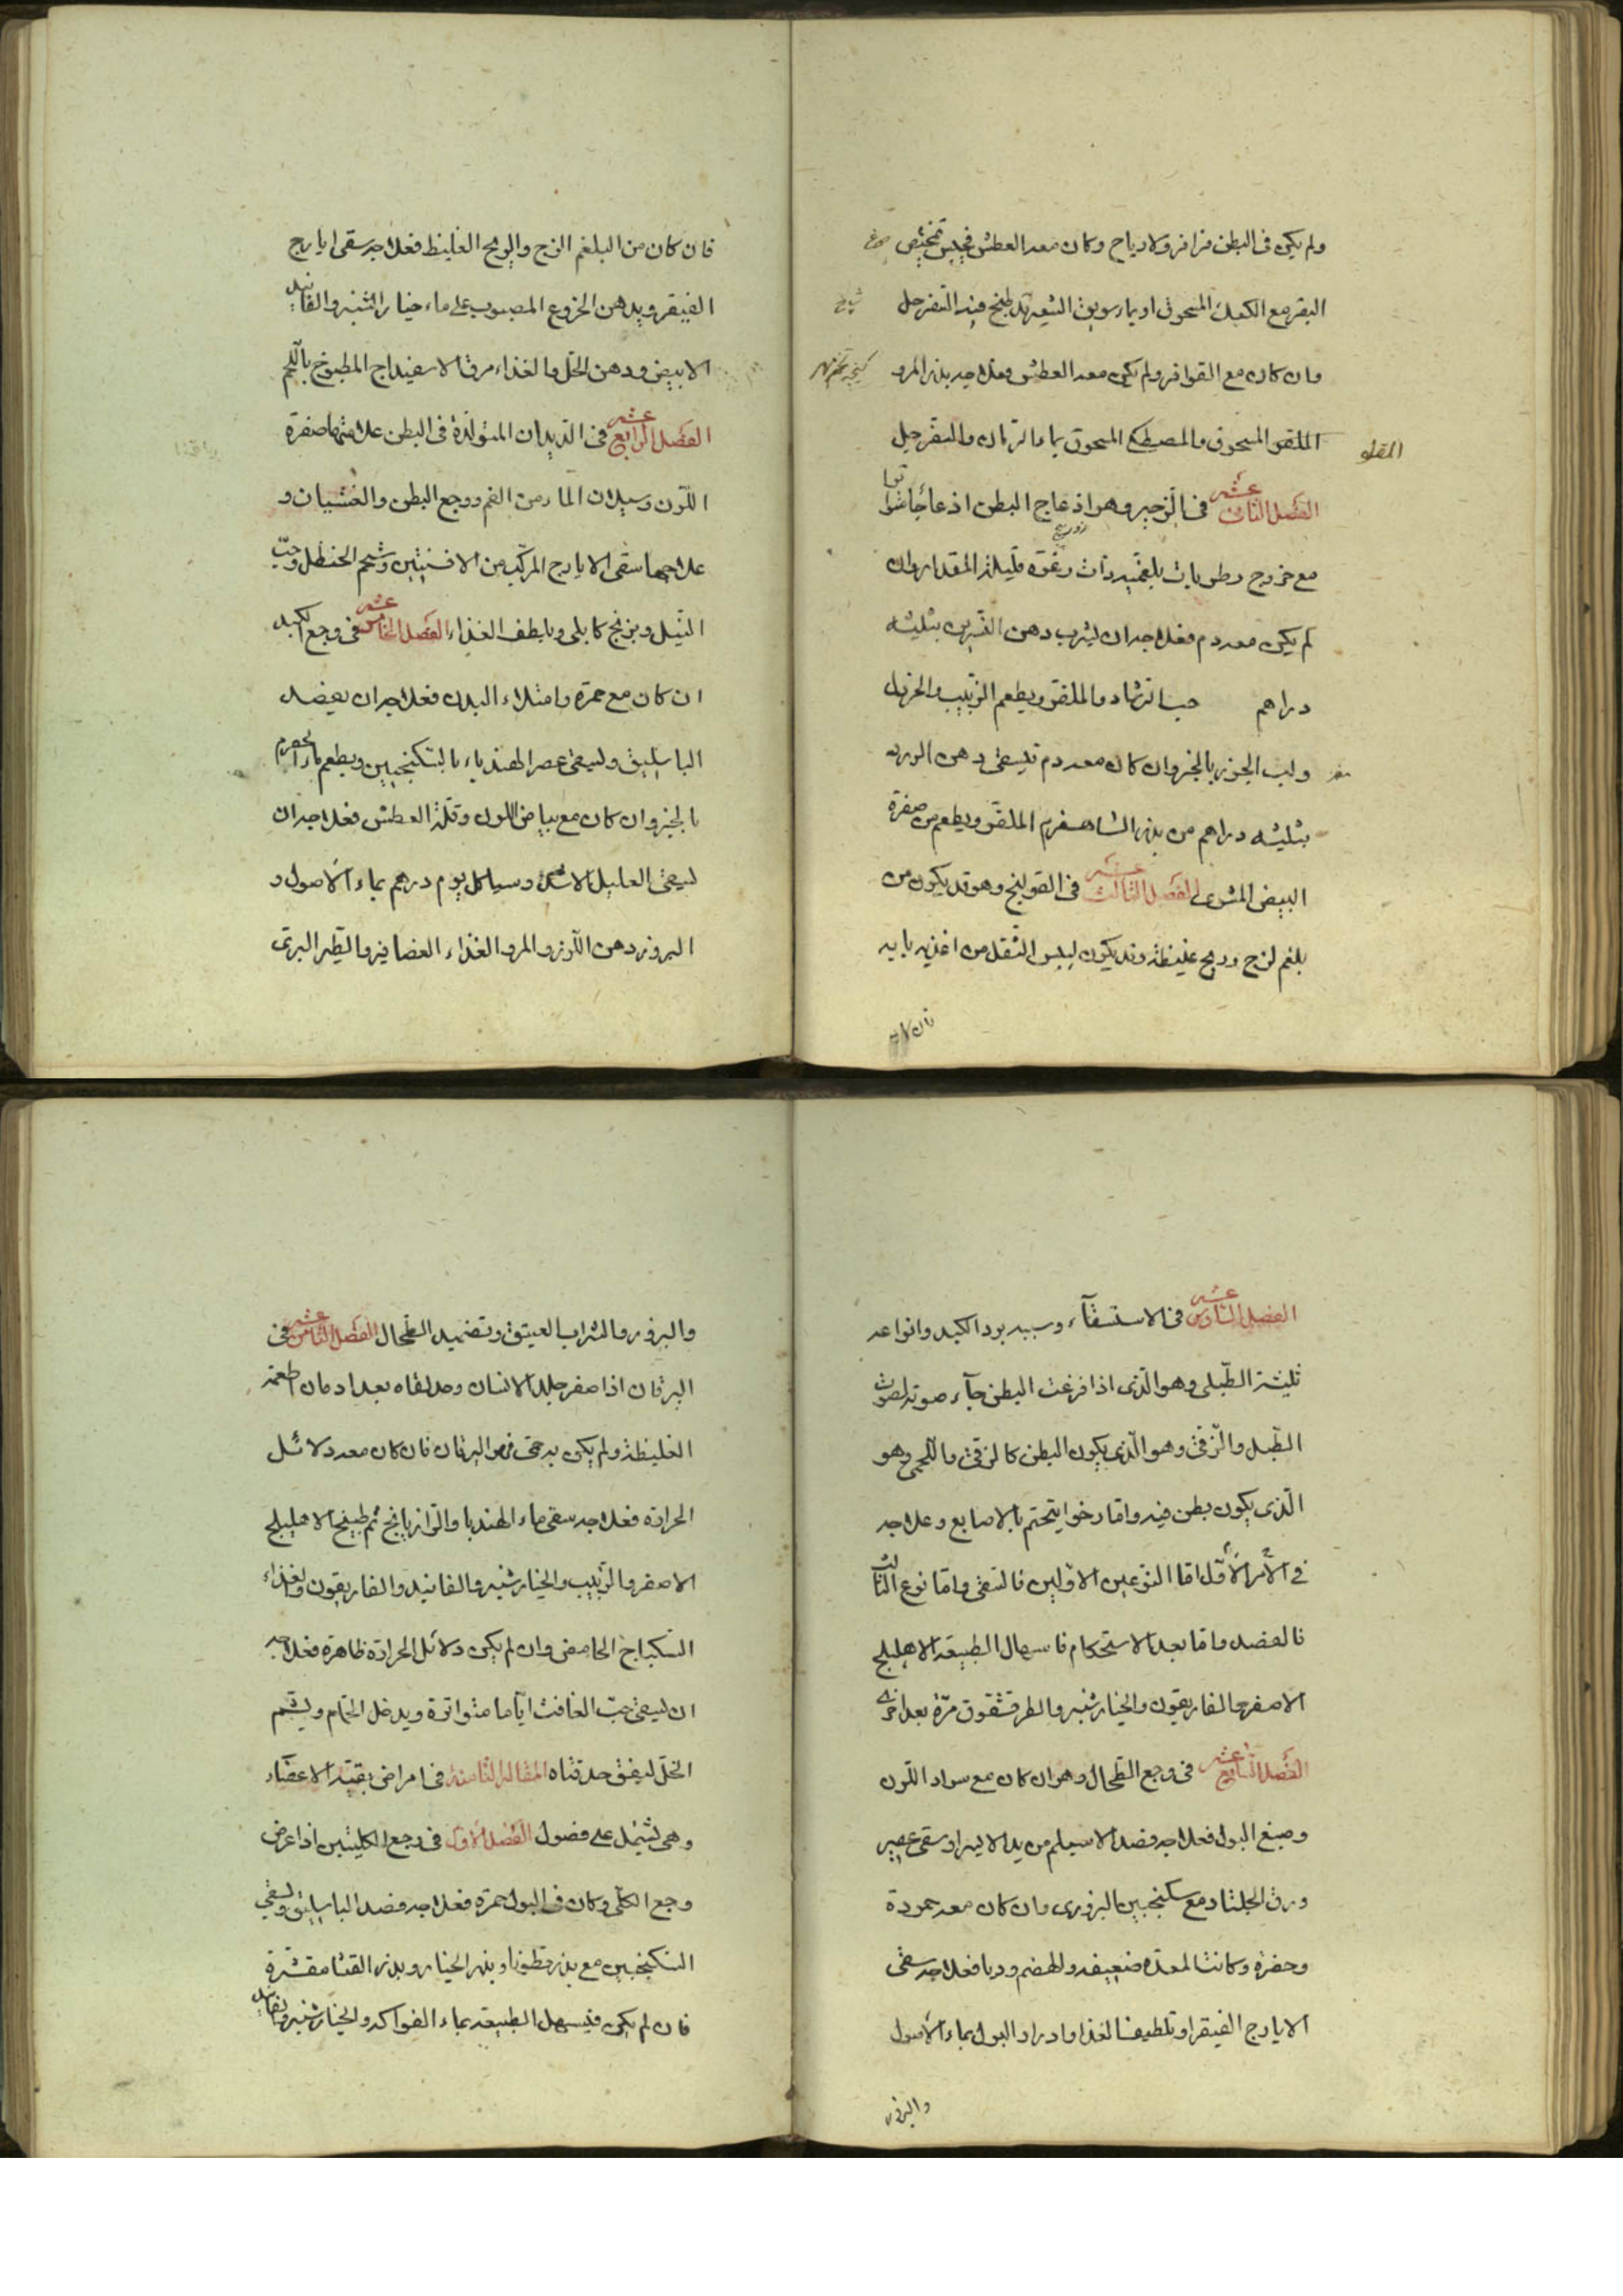 ولم يكن فى البطن قراقر ولا رياح وكان معه العطش فيحبس بمخيض
البقر مع الكعك المسحوق او بماء سويق الشعير قد طبخ فيه السفرجل
وان كان مع القراقر ولم يكن معه العطش فعلاجه بذر المرو
الملقو المسحوق والمصطكى المسحوق بماء الرمان والسفرجل
المقلو
الفصل الثانى عشر فى الزحير وهو انزعاج البطن انزعاجا متواترا
مع خروج رطوبات بلغمية ذات رغوة قليلة المقدار وان
لم يكن معه دم فعلاجه ان يشرب دهن بثلثه
دراهم حب الرشاد والملقو ويطعم الزبيب
ولب الجوز بالخبز وان كان معه دم فليسقى دهن الورد
بثلثه دراهم من بذر الشاهسفرم الملقو ويطعم من صفرة
البيض المشوى الفصل الثالث عشر فى القولنج وهو قد يكون من
بلغم لزج وريح غليظة وقد يكون ليبس الثفل من اغذيه يابسه
فان كان
فان كان من البلغم اللزج والريح الغليظ فعلاجه سقى ايارج
الفيقرو بدهن الخروع المصبوب على ماء خيار الشنبر والفانيد
الابيض ودهن الخل والغذاء مرق الاسفيداج المطبوخ باللحم
الفصل الرابع عشر فى الديدان المتولدة فى البطن علامتها صفرة
اللون وسيلان الماء من الفم ووجع البطن والغشيان و
علاجها سقى الايارج المركب من الافسنتين وشحم الحنظل وحب
النيل وبرنج كابلى وبلطف الغذاء الفصل الخامس عشر فى وجع الكبد
ان كان مع حمرة وامتلاء البدن فعلاجه ان يفصد
الباسليق وليسقى عصر الهندباء بالسكنجبين ويطعم ماء الحصرم
بالخبز وان كان مع بياض اللون وقلة العطش فعلاجه ان
ليسقى العليل كل يوم درهم بماء الاصول و
البزور دهن اللوز والمر والغذاء العصافير والطير البرى
الفصل السادس عشر فى الاستسقآء وسببه برد الكبد وانواعه
ثلثة الطبلى وهو الذى اذا قرعت البطن جآء صوته لصوت
الطبل والزقى وهو الذى يكون البطن كالزق واللحمى وهو
الذى يكون بطن فيه واقا رخوا يتختم بالاصابع وعلاجه
فى الامر الاول اما النوعين الاولين فالسقى واما نوع الثالث
فالفصد واما بعد الاستحكام فاسهال الطبيعة الاهليلج
الاصفر والغاريقون والخيار شنبر والطرقشقوق مرة بعد اخرى
الفصل السابع عشر فى وجع الطحال وهو ان كان مع سواد اللون
وصبغ البول فعلاجه فصد الاسيلم من يد الايسر او سقى عصير
ورق الجلنار مع سكنجبين البزورى وان كان معه حموده
وحفزة وكانت المعدة ضعيفه والهضم وديا فعلاجه سقى
الايارج الفيقرا وتلطيف الغذا وادرار البول بماء الاصول
والبزور
والبزور والشراب العتيق وتضميد الطحال الفصل الثامن عشر فى
اليرقان اذا اصفر جلد الانسان وحدقتاه بعد ادمان اطعمة
الغليظة ولم يكن به حمى فهو اليرقان فان كان معه دلائل
الحرارة فعلاجه سقى ماء الهندبا والرازيانج ثم طبيخ الاهليلج
الاصفر والزبيب والخيار شنبر والفانيد والغاريقون والغذاء
السكباج الحامض وان لم يكن دلائل الحرارة ظاهرة فعلاجه
ان ليسقى حب الغافت اياما متواترة ويدخل الحمام ويشم
الخل ليفق حدقتاه المقالة الثامنة فى امراض بقية الاعضاء
وهى يشتمل على فصول الفصل الاول فى وجع الكليتين اذا عرض
وجع الكلى وكان فى البول حمرة فعلاجه فصد الباسليق وسقى
السكنجبين مع بذر قطونا وبذر الخيار وبذر القثا مقشرة
فان لم يكن فليسهل الطبيعة بماء الفواكه والخيار شنبر والفانيد